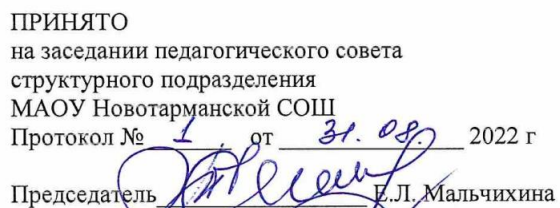 ПРИНЯТО
на заседании педагогического совета
структурного подразделения
МАОУ Новотарманской СОШ
Протокол № 1 от 31.08. 2022 г
Председатель Е.Л. Мальчихина